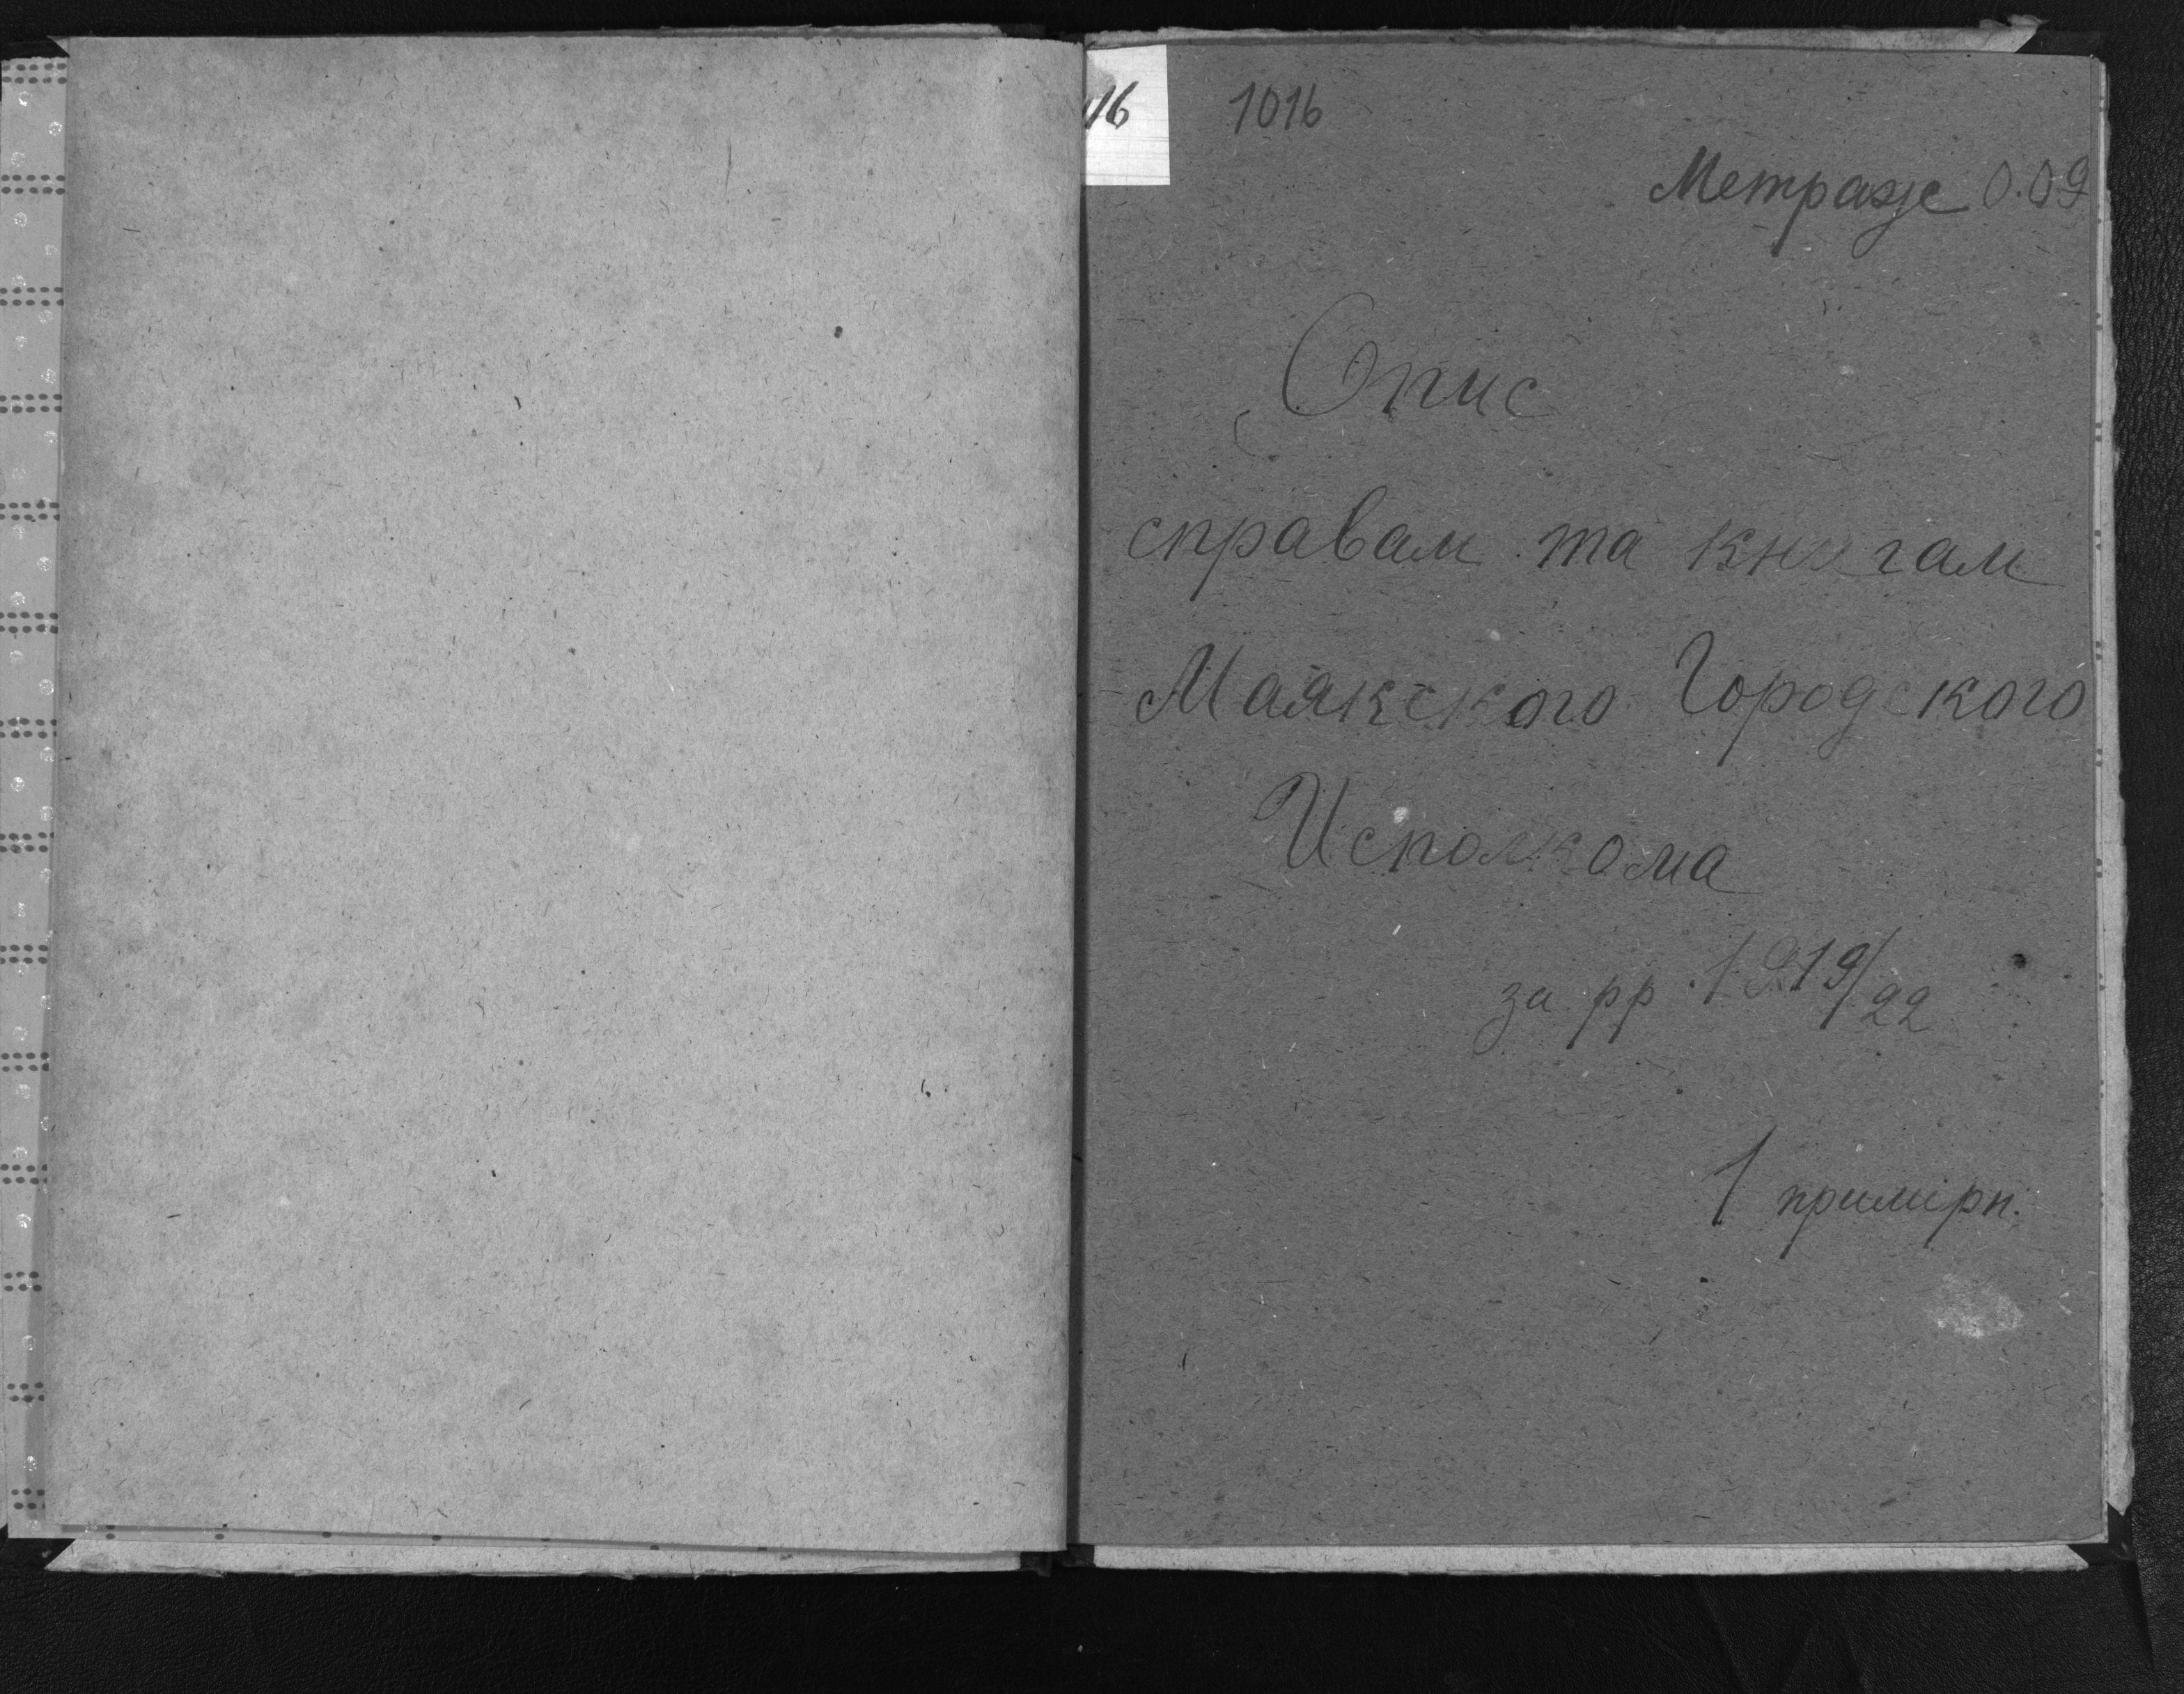 16
1016
Метраж 0.09
Опис
справам та книгам
Маякского Городского
Исполкома
за рр 1919/22
1 примірн.